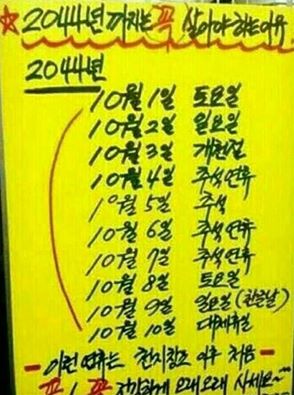 ☆ 2044년 까지는 꼭 살아야 하는 이유
2044년
10월 1일 토요일
10월 2일 일요일
10월 3일 개천절
10월 4일 추석연휴
10월 5일 추석
10월 6일 추석연휴
10월 7일 추석연휴
10월 8일 토요일
10월 9일 일요일 (한글날)
10월 10일 대체휴일
- 이런 연휴는 천지창조 이후 처음 -
꼭! 꼭 건강하게 오래오래 사세요~